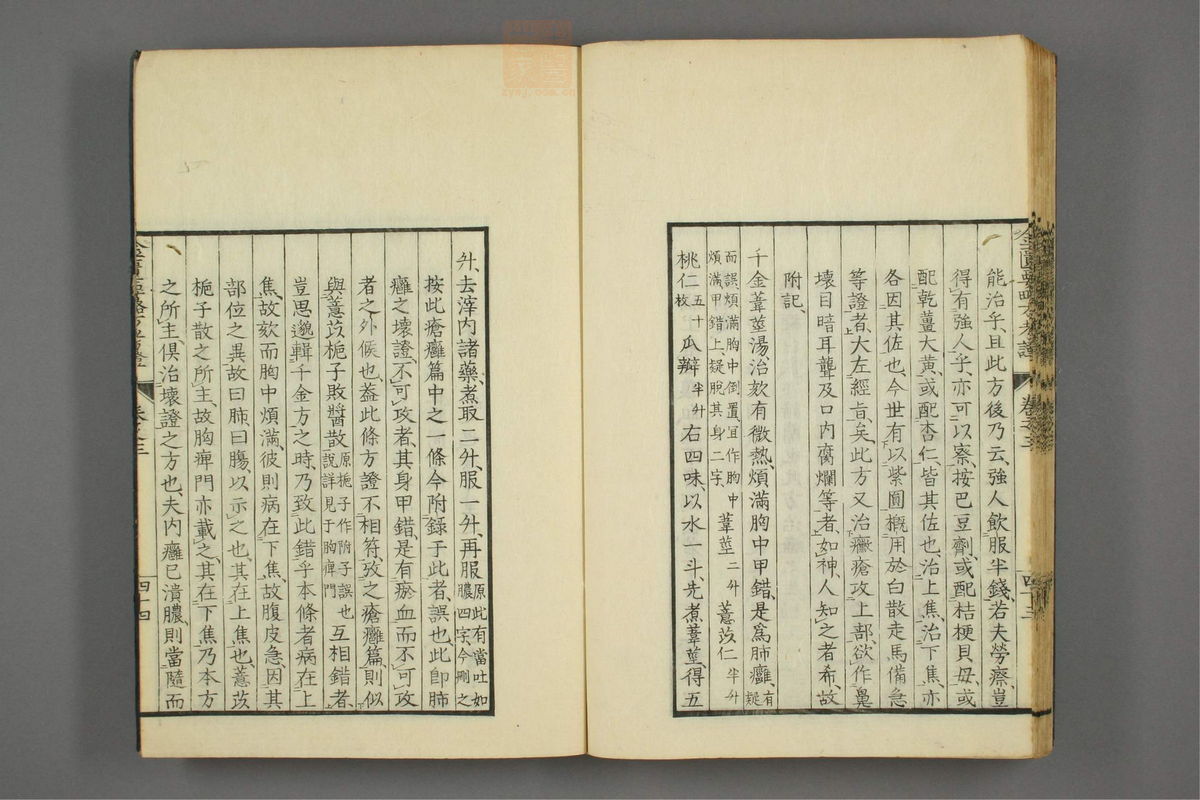 能治乎、且此方後乃云、強人飲服半錢、若夫勞瘵、豈
得有強人乎、亦可以察、按巴豆劑、或配桔梗貝毋、或
配乾薑大黃、或配杏仁、皆其佐也、治上焦、治下焦、亦
各因其佐也、今世有以紫圓概用於白散走馬備急
等證者、大左經旨矣、此方又治癩瘡攻上部、欲作鼻
壞目暗耳聾及口內腐爛等者、如神、人知之者希、故
附記、
千金葦莖湯治欬有微熱、煩滿胸中甲錯、是爲肺癰、有疑
而誤煩滿胸中倒置、宜作胸中
煩滿、甲錯上、疑脫其身二字、
葦莖二升 薏苡仁半升
桃仁五十枚 瓜瓣半升 右四味、以水一斗、先煮葦莖、得五
升、去滓、內諸藥、煮取二升、服一升、再服原此有當吐如膿四字、今刪之
按此瘡癰篇中之一條、今附錄于此者、誤也、此卽肺
癰之壞證、不可攻者、其身甲錯、是有瘀血而不可攻
者之外候也、蓋此條方證不相符、攷之瘡癰篇、則似
與薏苡梔子敗醬散原梔子作附子誤也說詳見于胸痺門互相錯者、
豈思邈輯千金方之時、乃致此錯乎、本條者、病在上
焦、故欬而胸中煩滿、彼則病在下焦、故腹皮急、因其
部位之異、故曰肺、曰腸、以示之也、其在上焦也、薏苡
梔子散之所主、故胸痺門亦載之、其在下焦、乃本方
之所主、俱治壞證之方也、夫內癰已潰膿、則當隨而
卷之三
四十四